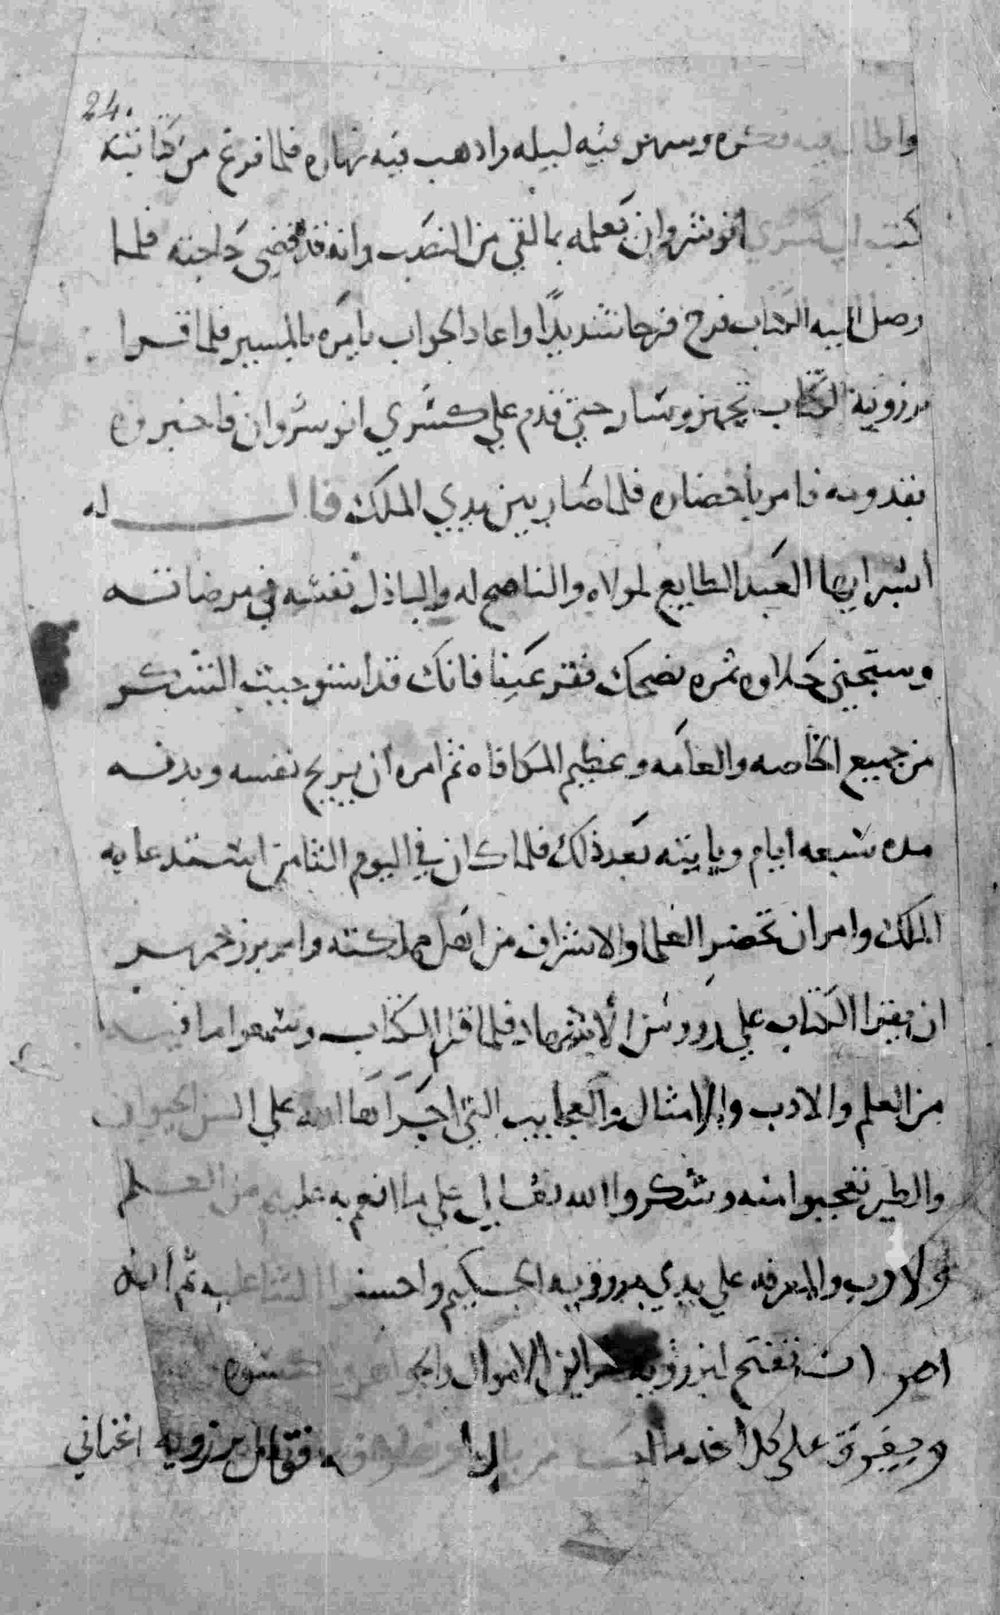 24.
واطال فيه فكره وسهر فيه ليله واذهب فيه نهاره فلما فرغ من كتابته
كتب الي كسري انوشروان يعلمه بما لقي من النصب وانه قد قضي حاجته فلما
وصل اليه الكتاب فرح فرحا شديدًا واعاد الجواب يامره بالمسير فلما قرا
برزويه الكتاب تجهز وسار حتي قدم علي كسري انوشروان فاخبروه
بقدومه فامر باحضاره فلما صار بين يدي الملك قال له
ابشر ايها العبد الطايع لمولاه والناصح له والباذل نفسه في مرضاته
وستجني حلاوه ثمره نصحك فقر عينا فانك قد استوجبت الشكر
من جميع الخاصه والعامه وعظيم المكافاه ثم امره ان يريح نفسه وبدنه
مده سبعه ايام وياتيه بعد ذلك فلما كان في اليوم الثامن استدعا به
الملك وامر ان تحضر العلما والاشراف من اهل مملكته وامر بزرجمهر
ان يقرا الكتاب علي رووس الاشهاد فلما قرا الكتاب وسمعوا ما فيه
من العلم والادب والامثال والعجايب التي اجراها الله علي السن الحيوان
والطير تعجبوا منه وشكروا الله تعالي علي ما انعم به عليهم من العلم
والادب والمعرفه علي يدي برزويه الحكيم واحسنوا الثنا عليه ثم انه
امر ان تفتح لبرزويه خزاين الاموال والجواهر والكسوه
ويعرض على كلما فقال برزويه اغناني